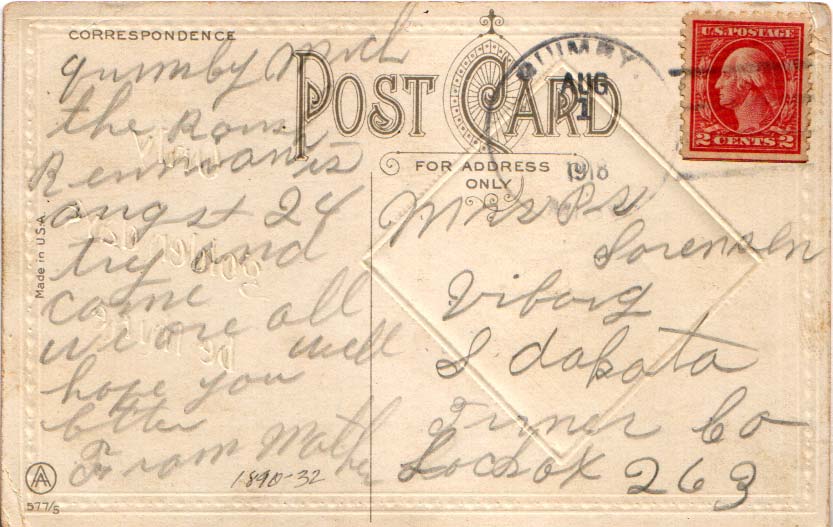 CORRESPONDENCE
POST CARD
FOR ADDRESS
ONLY
QUIMBY
AUG
1
1918
U.S. POSTAGE
2 CENTS 2
quimby Mich
the
is
augst 24
try and
come
we are all
well
hope you
btter
From Mother
1890-32
Mrs P S
Sorensen
Viborg
S dakota
Turner Co
Locbox 263
Made in U.S.A.
AA
577/S